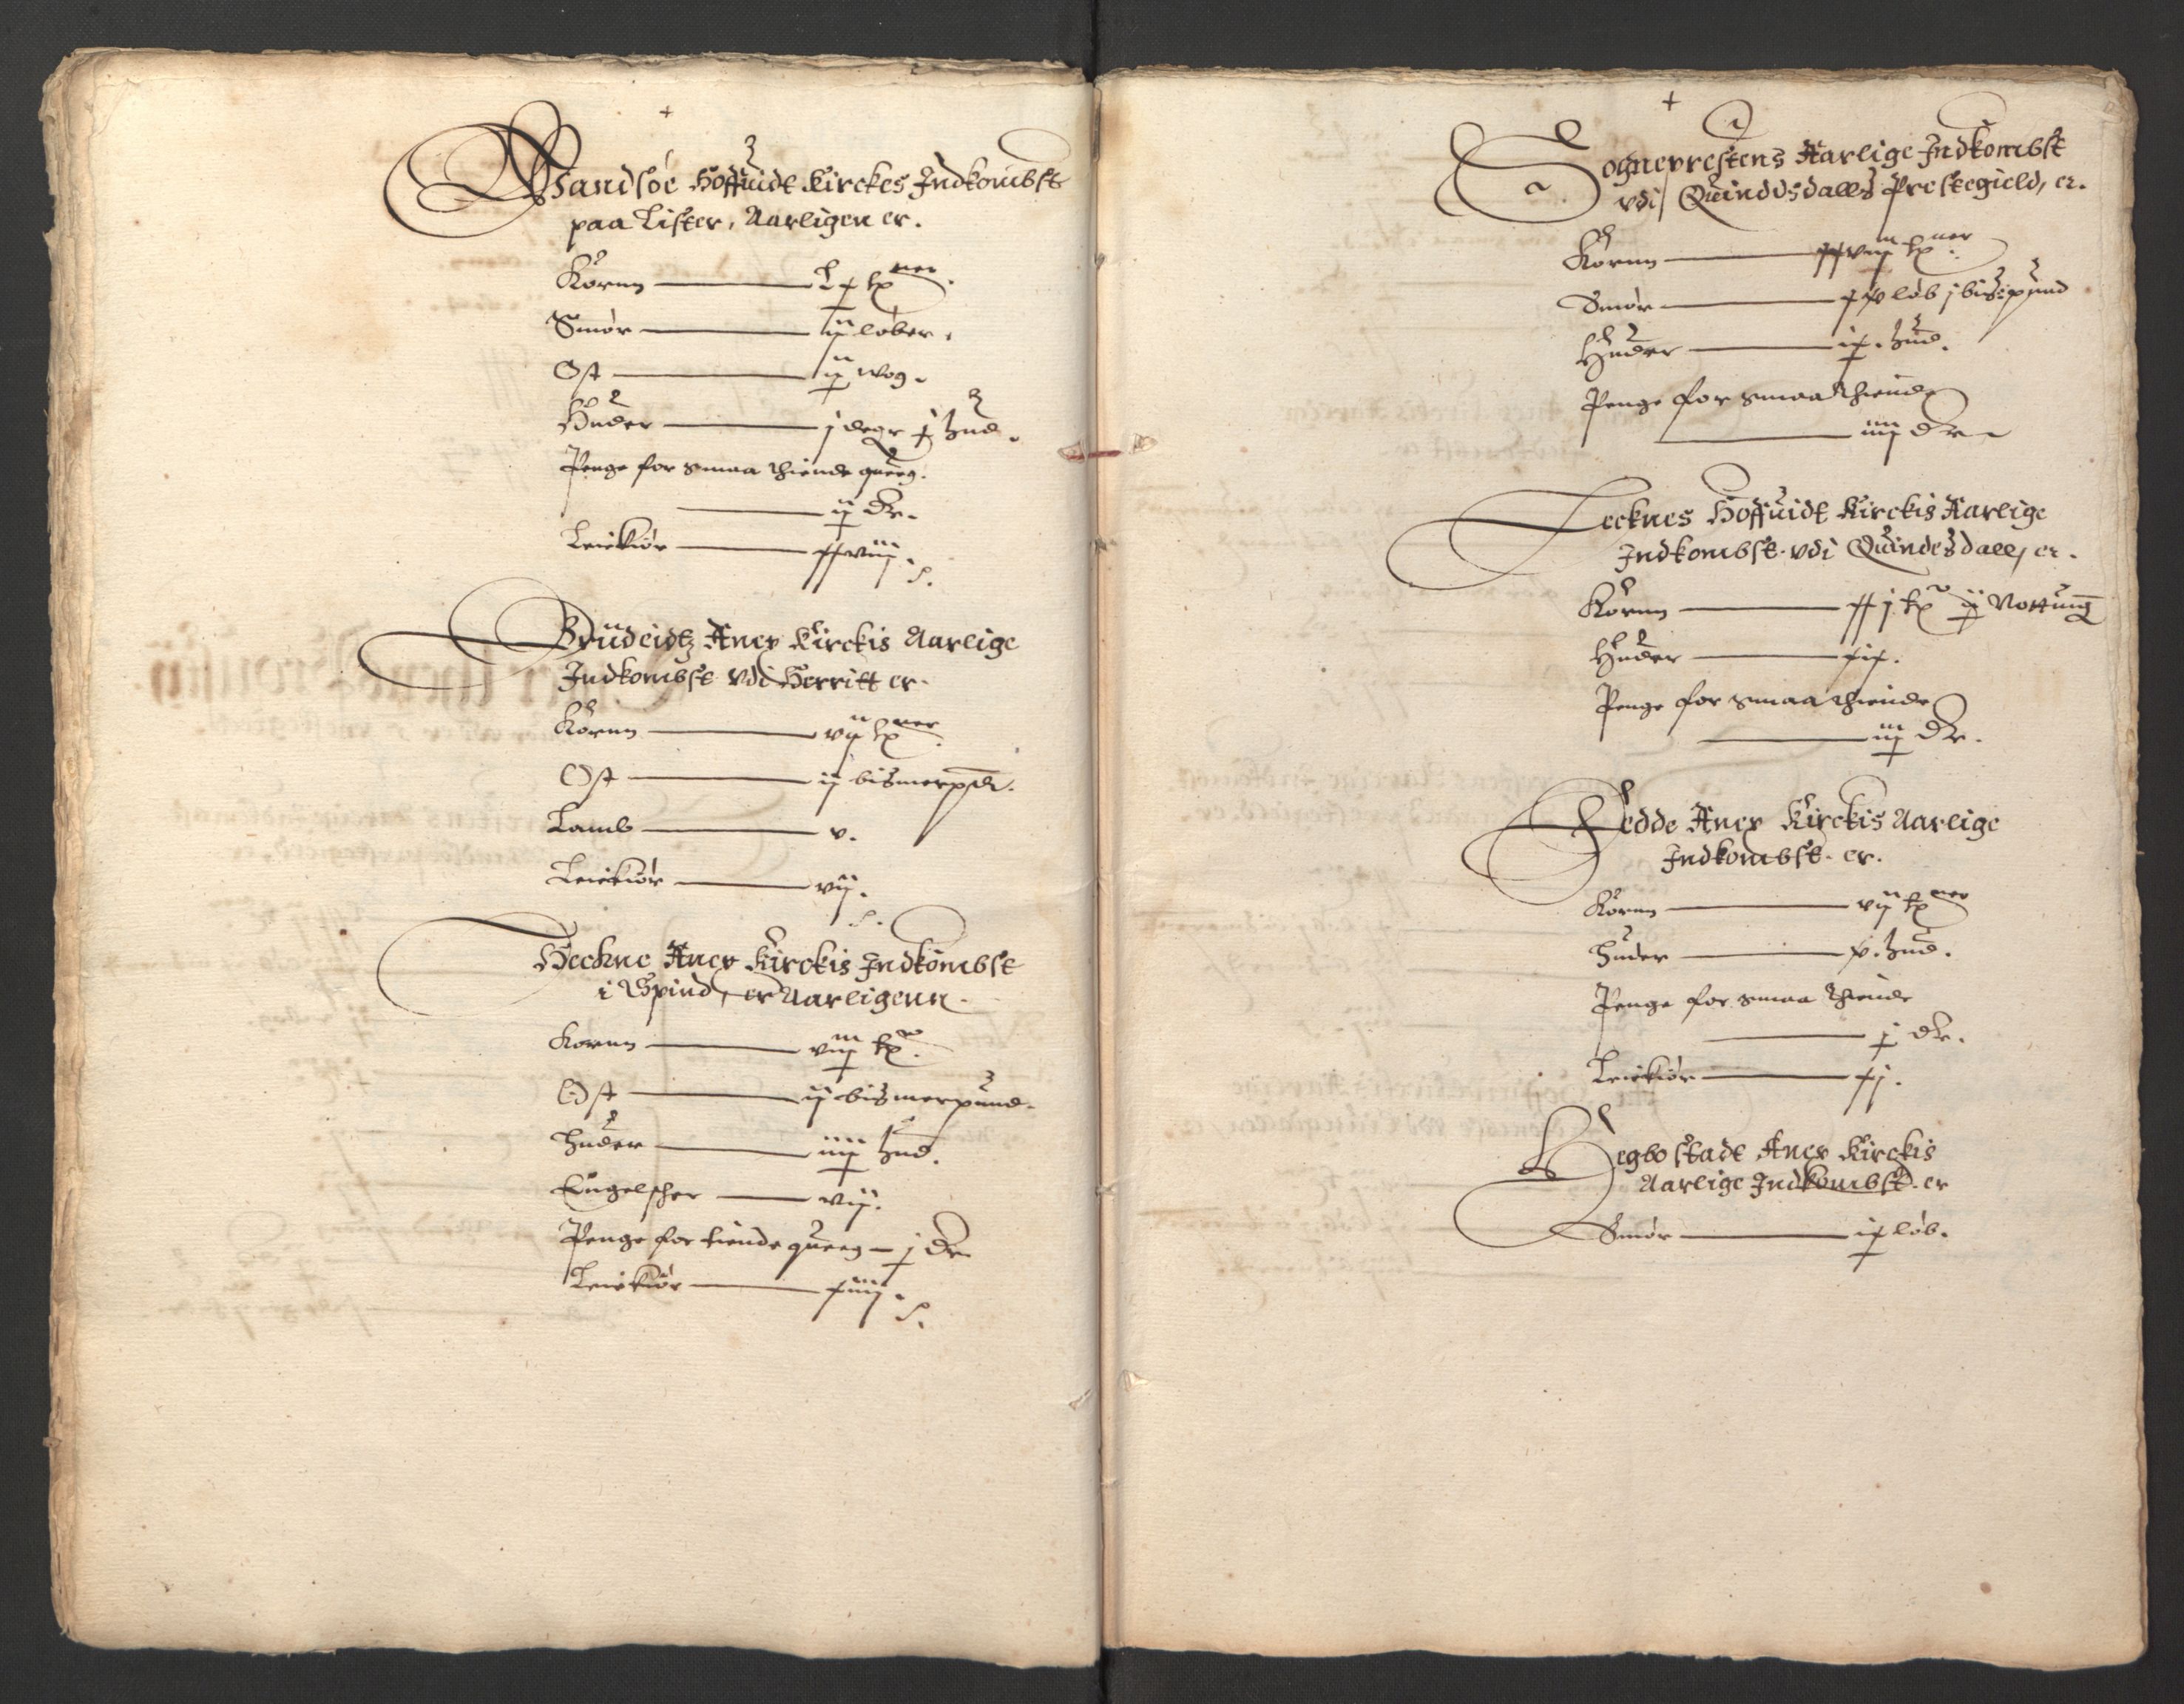 Wandsøe Hoffuidt Kirckes Indkombst
paa Lister, Aarligen er.
Kornn
Smør ij løber.
Ost ij wog.
Huder j degr j hud.
Penge for smaa thiende queeg.
ij dr.
Leiekiør xxviij.
Brüdeidtz Anex Kirckis Aarlige
Indkombst vdi Herritt er.
Kornn vij tp ner
Ost ij bismerpd.
Lamb v.
Leiekiør vij.
Heckne Anex Kirckis Indkombst
i Spind, er Aarligenn.
Kornn viij tp
Ost ij bismerpund.
Huder iiij hud.
Engelscher vij.
Penge for tiende queeg j dr
Leiekiør xiij.
Sogneprestens Aarlige Indkombst
vdi Quindisdalls Prestegield, er.
Kornn xxviij tp ner
Smør løb j bis:pund
Huder ix. hud.
Penge for smaa thiende
iiij dr
Lecknes Hoffuidt Kirckis Aarlige
Indkombst vdi Quindesdall, er.
Kornn xxj tp ij Nottung
Huder xix.
Penge for smaa thiende
iij dr.
Fedde Anex Kirckis Aarlige
Indkombst er.
Kornn vij tp ner
Huder x. hud.
Penge for smaa thiende
j dr.
Leiekiør xj.
Hegbostadt Anex Kirckis
Aarlige Indkombst er
Smør ix løb.